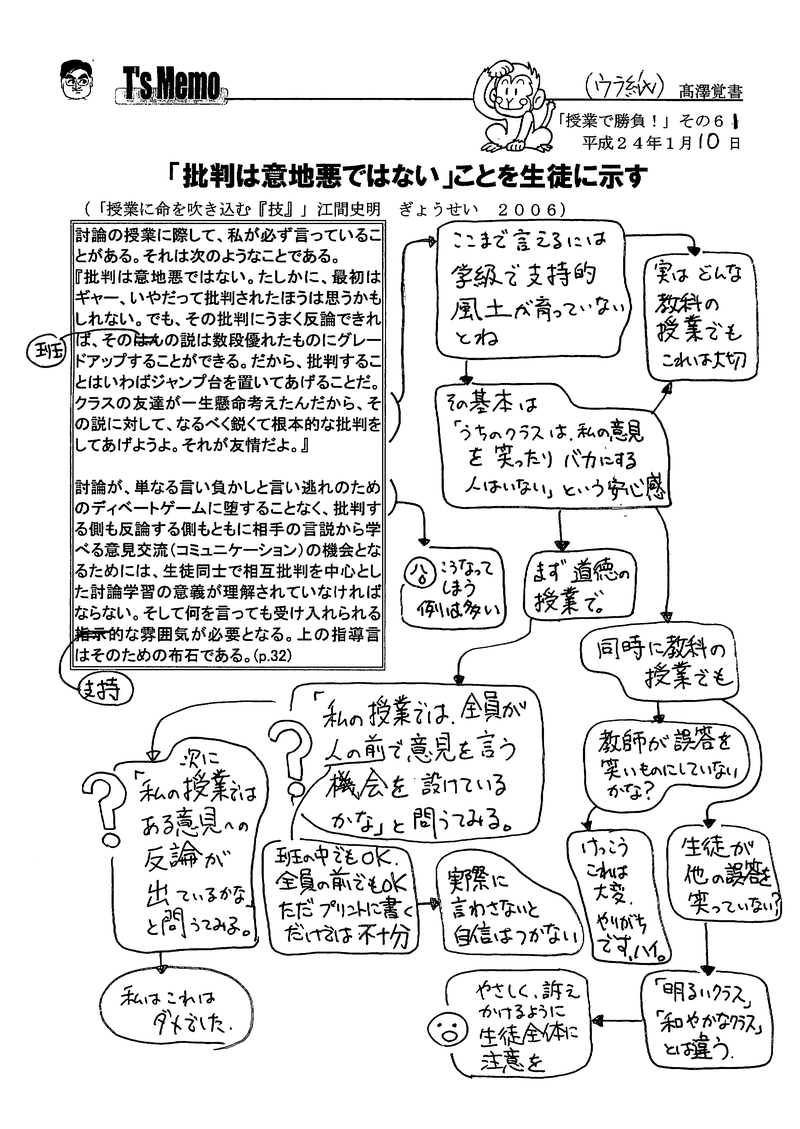 T's Memo
（ウラ紙） 髙澤覚書
「授業で勝負！」その６１
平成２４年１月１０日
「批判は意地悪ではない」ことを生徒に示す
（「授業に命を吹き込む『技』」江間史明　ぎょうせい　２００６）
討論の授業に際して、私が必ず言っているこ
とがある。それは次のようなことである。
『批判は意地悪ではない。たしかに、最初は
ギャー、いやだって批判されたほうは思うかも
しれない。でも、その批判にうまく反論できれ
ば、そのはんの説は数段優れたものにグレー
ドアップすることができる。だから、批判するこ
とはいわばジャンプ台を置いてあげることだ。
クラスの友達が一生懸命考えたんだから、そ
の説に対して、なるべく鋭くて根本的な批判を
してあげようよ。それが友情だよ。』
討論が、単なる言い負かしと言い逃れのため
のディベートゲームに堕することなく、批判す
る側も反論する側もともに相手の言説から学
べる意見交流（コミュニケーション）の機会とな
るためには、生徒同士で相互批判を中心とし
た討論学習の意義が理解されていなければ
ならない。そして何を言っても受け入れられる
指示的な雰囲気が必要となる。上の指導言
はそのための布石である。（p.32）
班
支持
ここまで言えるには
学級で支持的
風土が育っていない
とね
実は どんな
教科の
授業でも
これは大切
その基本は
「うちのクラスは、私の意見
を笑ったり バカにする
人はいない」という安心感
こうなって
しまう
例は多い
まず 道徳の
授業で。
同時に教科の
授業でも
教師が誤答を
笑いものにしていない
かな？
けっこう
これは
大変．
やりがち
です，ハイ。
生徒が
他の誤答を
笑っていない？
「明るいクラス」
「和やかなクラス」
とは違う．
やさしく、訴え
かけるように
生徒全体に
注意を
「私の授業では、全員が
人の前で意見を言う
機会を設けている
かな」と問うてみる。
？
班の中でもOK．
全員の前でもOK
ただ プリントに書く
だけでは 不十分
実際に
言わさないと
自信はつかない
次に
「私の授業では
ある意見への
反論が
出ているかな」
と問うてみる。
？
私はこれは
ダメでした．